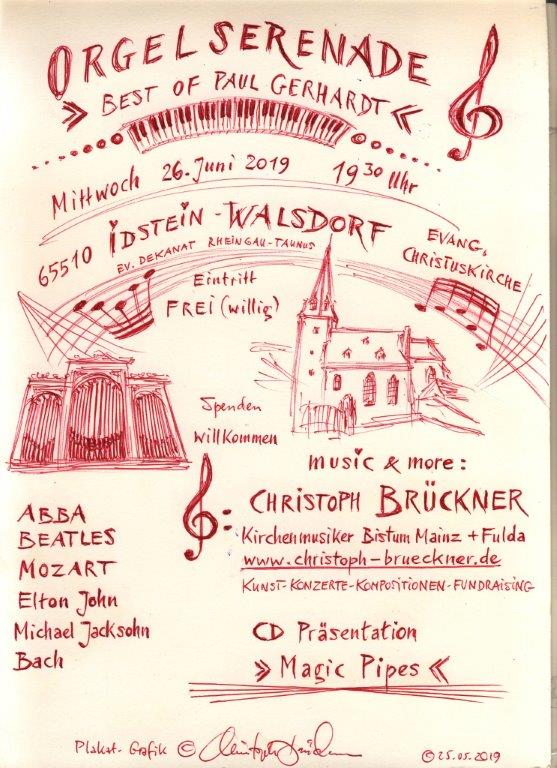 ORGELSERENADE
» BEST OF PAUL GERHARDT «
Mittwoch 26. Juni 2019 19³⁰ Uhr
65510 IDSTEIN-WALSDORF
EV. DEKANAT RHEINGAU-TAUNUS
EVANG.
CHRISTUSKIRCHE
Eintritt
FREI (willig)
Spenden
willkommen
music & more:
CHRISTOPH BRÜCKNER
Kirchenmusiker Bistum Mainz + Fulda
www.christoph-brueckner.de
KUNST-KONZERTE-KOMPOSITIONEN-FUNDRAISING
ABBA
BEATLES
MOZART
Elton John
Michael Jacksohn
Bach
CD Präsentation
» Magic Pipes «
Plakat-Grafik ©
© 25.05.2019